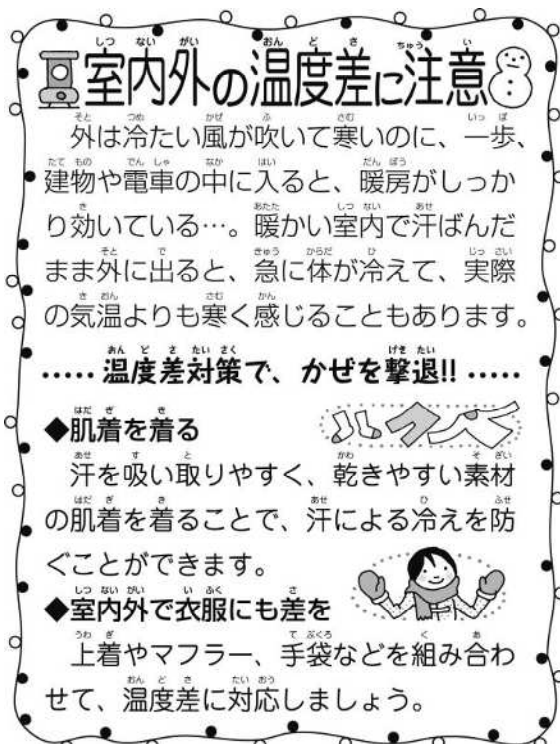 室内外の温度差に注意
外は冷たい風が吹いて寒いのに、一歩、
建物や電車の中に入ると、暖房がしっか
り効いている…。暖かい室内で汗ばんだ
まま外に出ると、急に体が冷えて、実際
の気温よりも寒く感じることもあります。
····· 温度差対策で、かぜを撃退!! ·····
◆肌着を着る
汗を吸い取りやすく、乾きやすい素材
の肌着を着ることで、汗による冷えを防
ぐことができます。
◆室内外で衣服にも差を
上着やマフラー、手袋などを組み合わ
せて、温度差に対応しましょう。